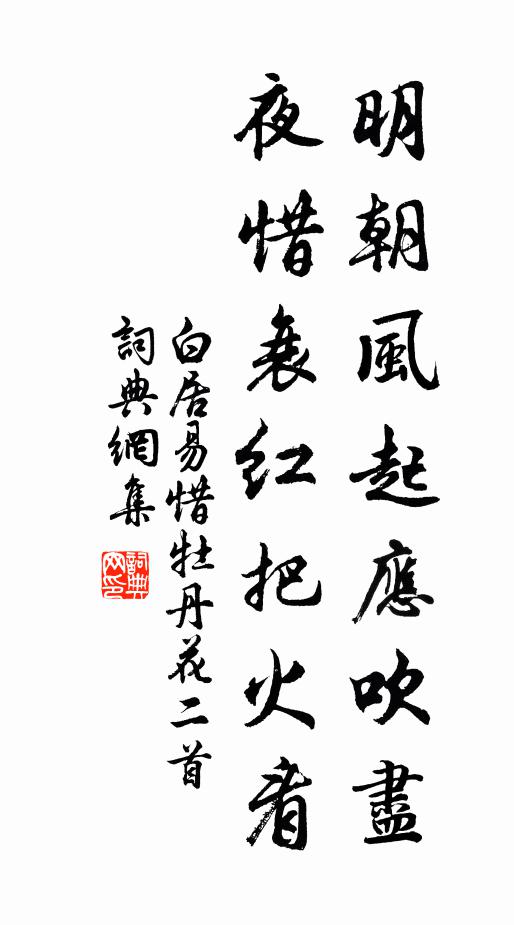 明朝風起應吹盡
夜惜衰紅把火看
白居易惜牡丹花二首
詞典網集
詞典網印